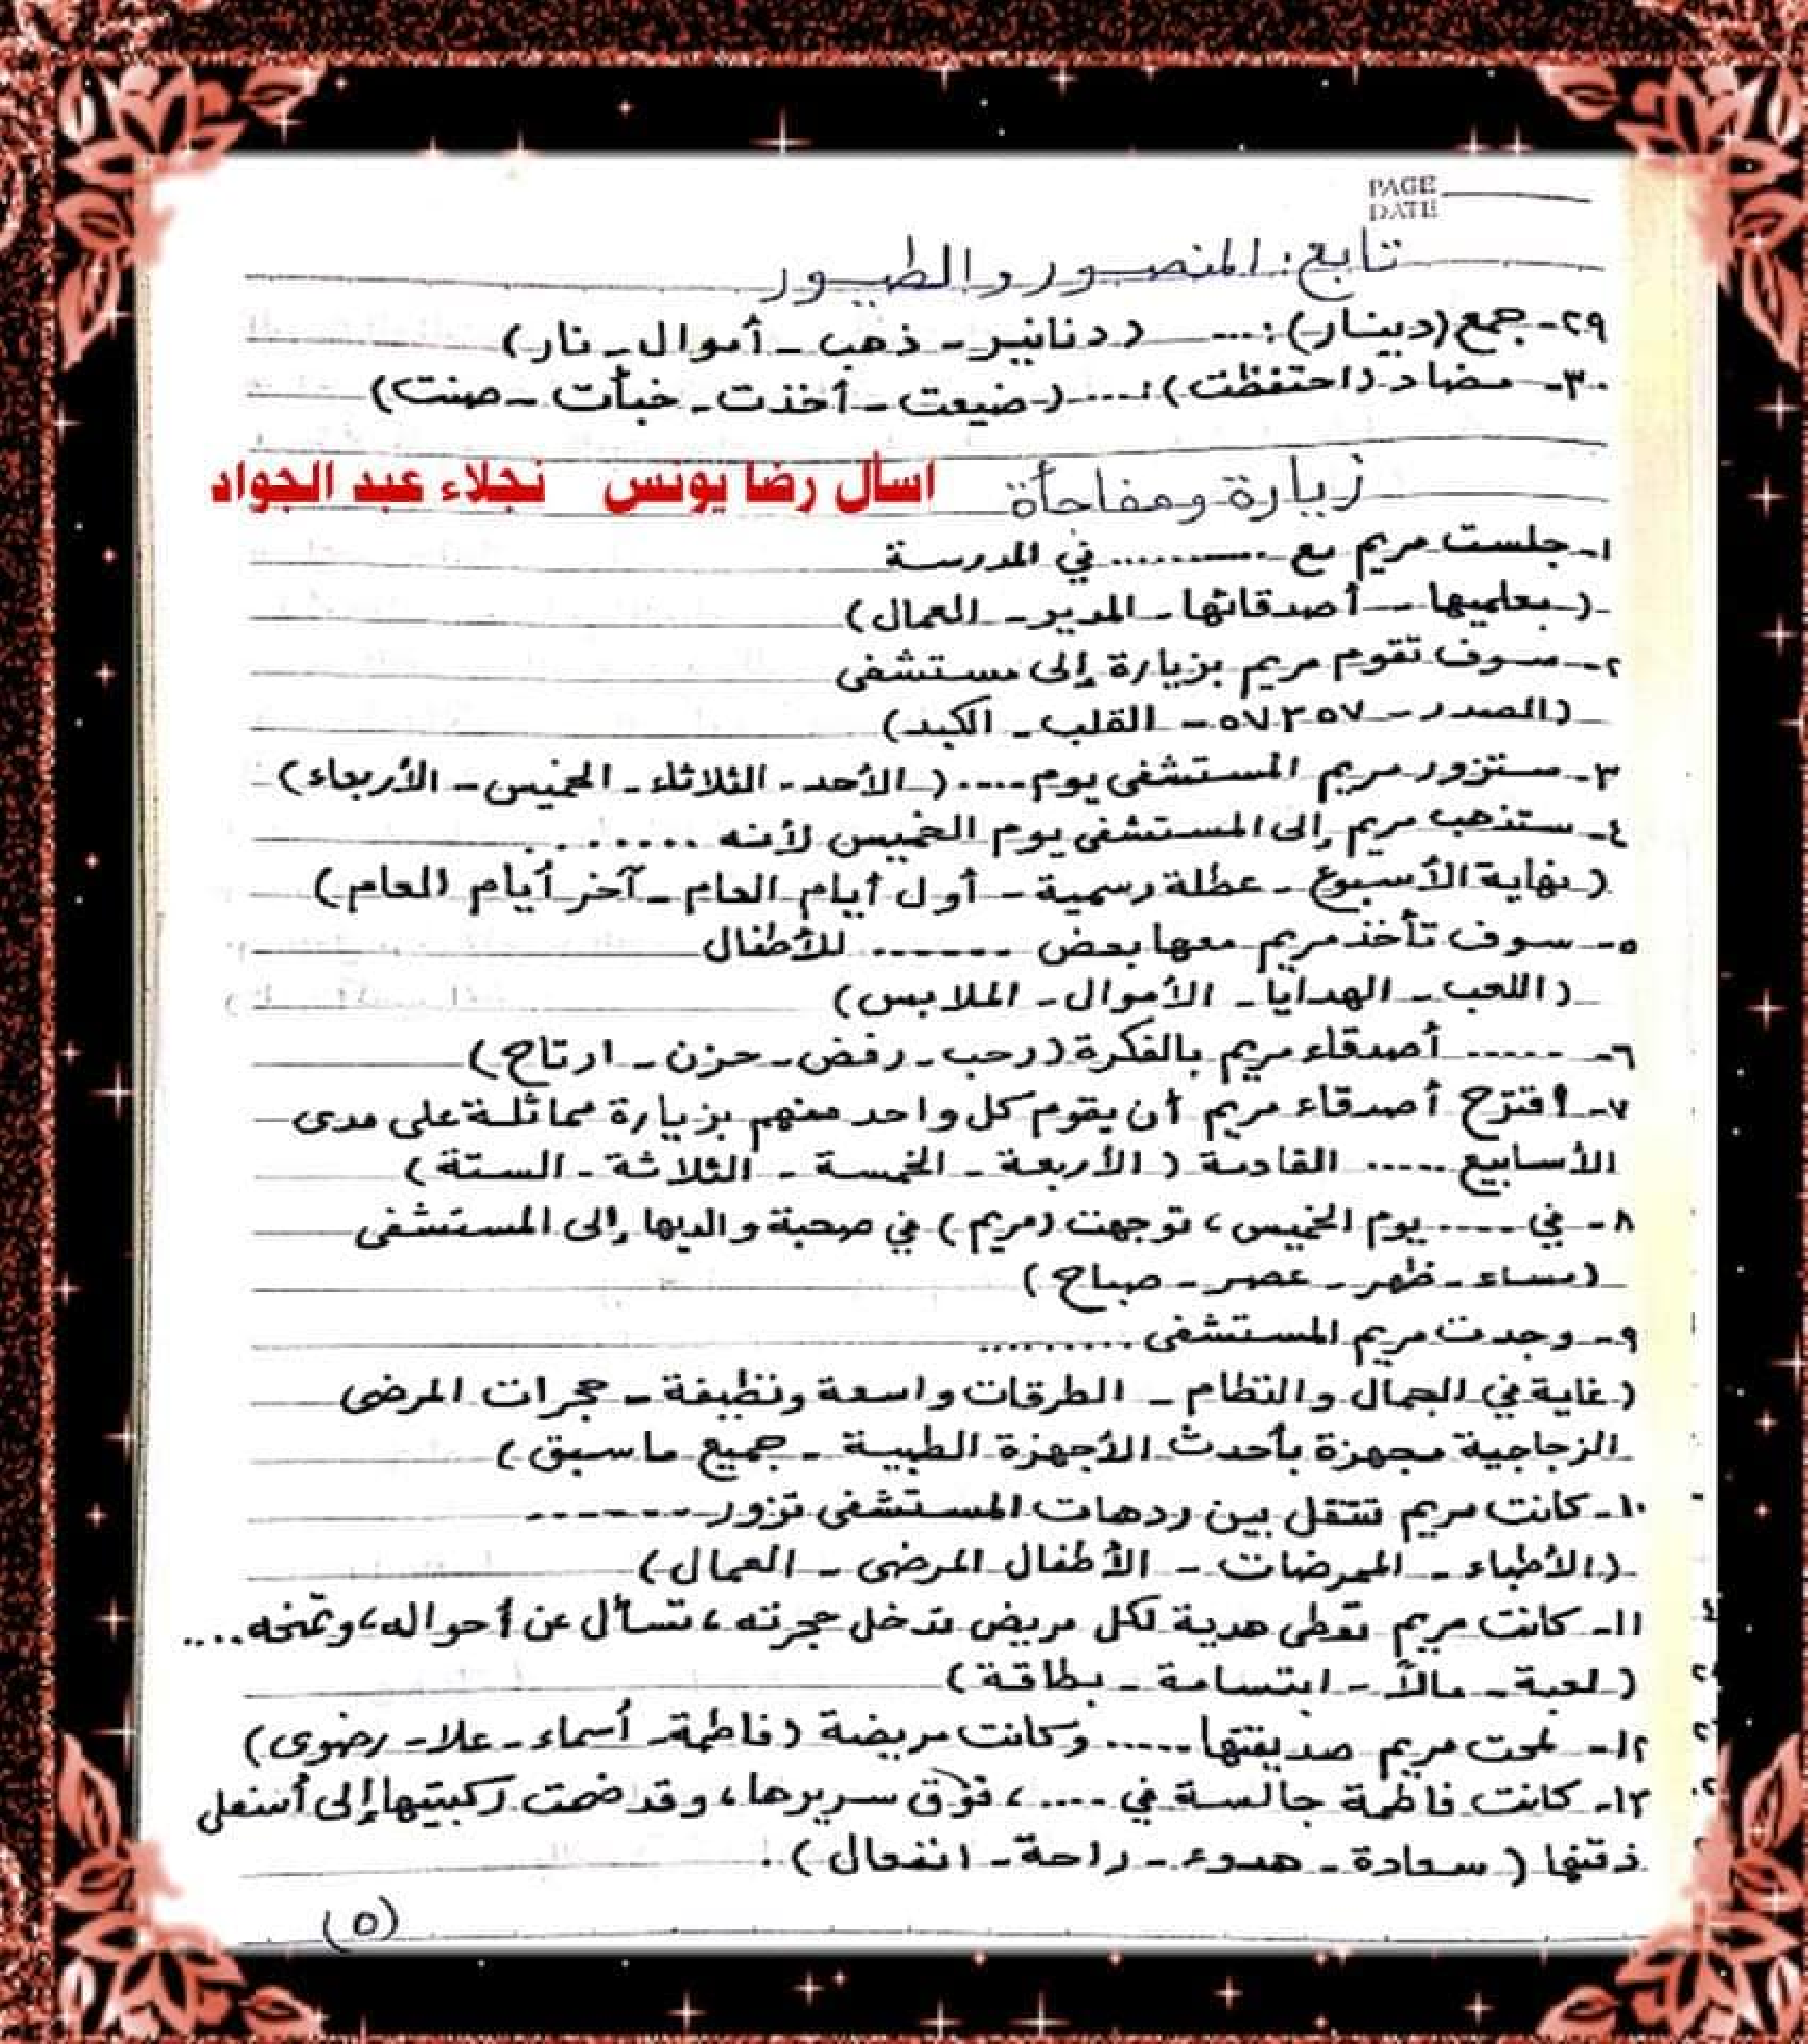 PAGE
DATE
تابع: المنصور والطيور
٢٩- جمع (دينار): .... (دنانير - ذهب - أموال - نار)
٣٠- مضاد (احتفظت): .... (ضيعت - أخذت - خبأت - صنت)
زيارة ومفاجأة اسأل رضا يونس نجلاء عبد الجواد
١- جلست مريم مع .......... في المدرسة
(معلميها - أصدقائها - المدير - العمال)
٢- سوف تقوم مريم بزيارة إلى مستشفى
(الصدر - ٥٧٣٥٧ - القلب - الكبد)
٣- ستزور مريم المستشفى يوم .... (الأحد - الثلاثاء - الخميس - الأربعاء)
٤- ستذهب مريم إلى المستشفى يوم الخميس لأنه ........
(نهاية الأسبوع - عطلة رسمية - أول أيام العام - آخر أيام العام)
٥- سوف تأخذ مريم معها بعض ....... للأطفال
(اللعب - الهدايا - الأموال - الملابس)
٦- ...... أصدقاء مريم بالفكرة (رحب - رفض - حزن - ارتاح)
٧- اقترح أصدقاء مريم أن يقوم كل واحد منهم بزيارة مماثلة على مدى
الأسابيع ..... القادمة (الأربعة - الخمسة - الثلاثة - الستة)
٨- في .... يوم الخميس، توجهت (مريم) في صحبة والديها إلى المستشفى
(مساء - ظهر - عصر - صباح)
٩- وجدت مريم المستشفى .........
(غاية في الجمال والنظام - الطرقات واسعة ونظيفة - حجرات المرضى
الزجاجية مجهزة بأحدث الأجهزة الطبية - جميع ما سبق)
١٠- كانت مريم تنتقل بين ردهات المستشفى تزور .......
(الأطباء - الممرضات - الأطفال المرضى - العمال)
١١- كانت مريم تعطى هدية لكل مريض تدخل حجرته، تسأل عن أحواله، وتمنحه ....
(لعبة - مالاً - ابتسامة - بطاقة)
١٢- لمحت مريم صديقتها ..... وكانت مريضة (فاطمة - أسماء - علا - رضوى)
١٣- كانت فاطمة جالسة في ....، فوق سريرها، وقد ضمت ركبتيها إلى أسفل
ذقنها (سعادة - هدوء - راحة - انفعال).
(٥)